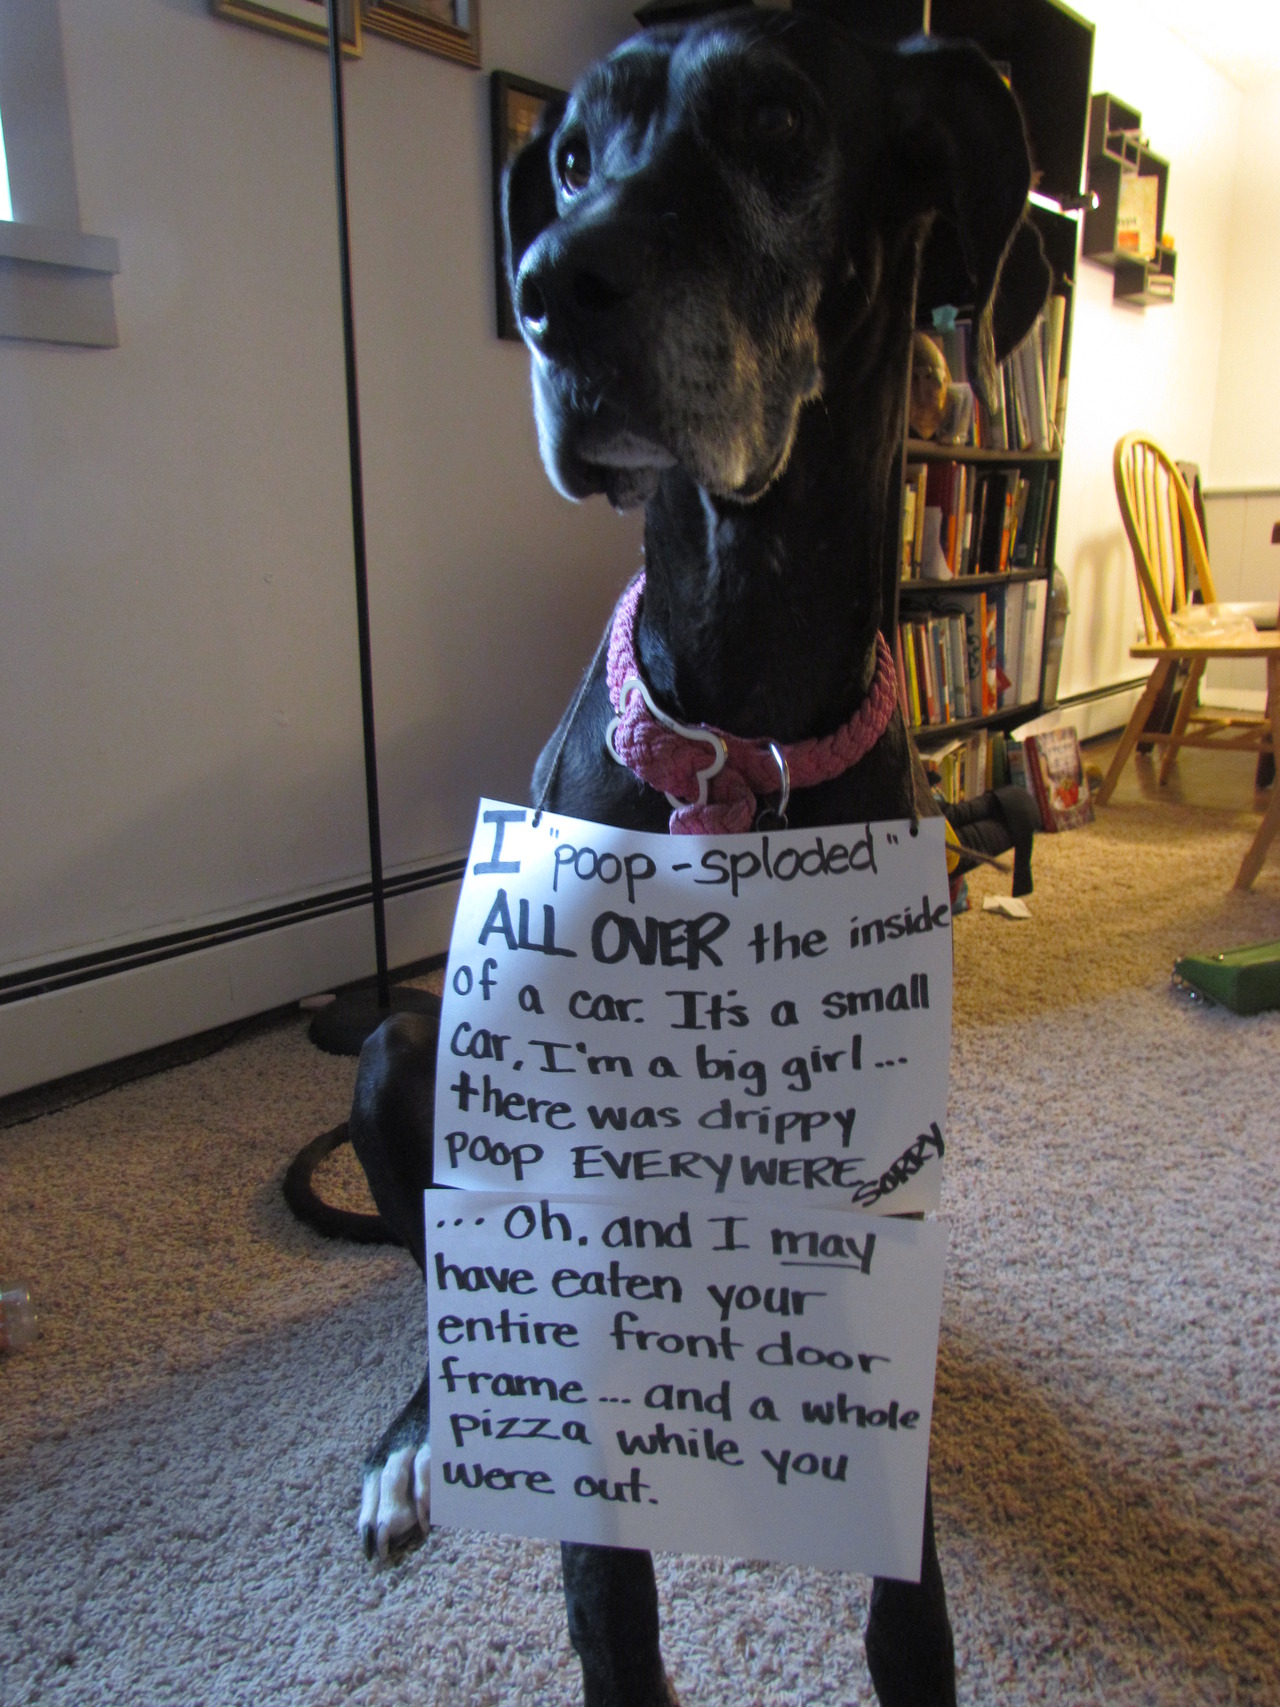 I "poop-sploded"
ALL OVER the inside
of a car. It's a small
car, I'm a big girl...
there was drippy
poop EVERYWERE
SORRY
... oh, and I may
have eaten your
entire front door
frame... and a whole
pizza while you
were out.